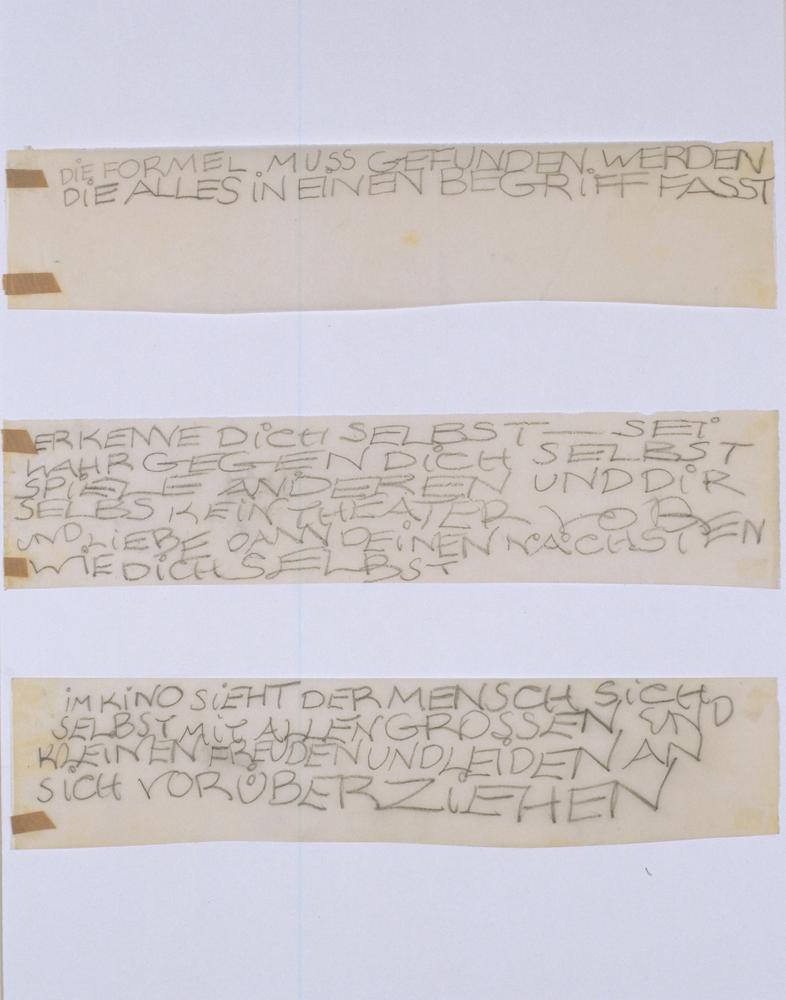 DIE FORMEL MUSS GEFUNDEN WERDEN
DIE ALLES IN EINEN BEGRIFF FASST
ERKENNE DICH SELBST — SEI
WAHR GEGEN DICH SELBST
SPIELE ANDEREN UND DIR
SELBS KEIN THEATER VOR
UND LIEBE DANN DEINEN NÄCHSTEN
WIE DICH SELBST
IM KINO SIEHT DER MENSCH SICH
SELBST MIT ALLEN GROSSEN UND
KLEINEN FREUDEN UND LEIDEN AN
SICH VORÜBERZIEHEN